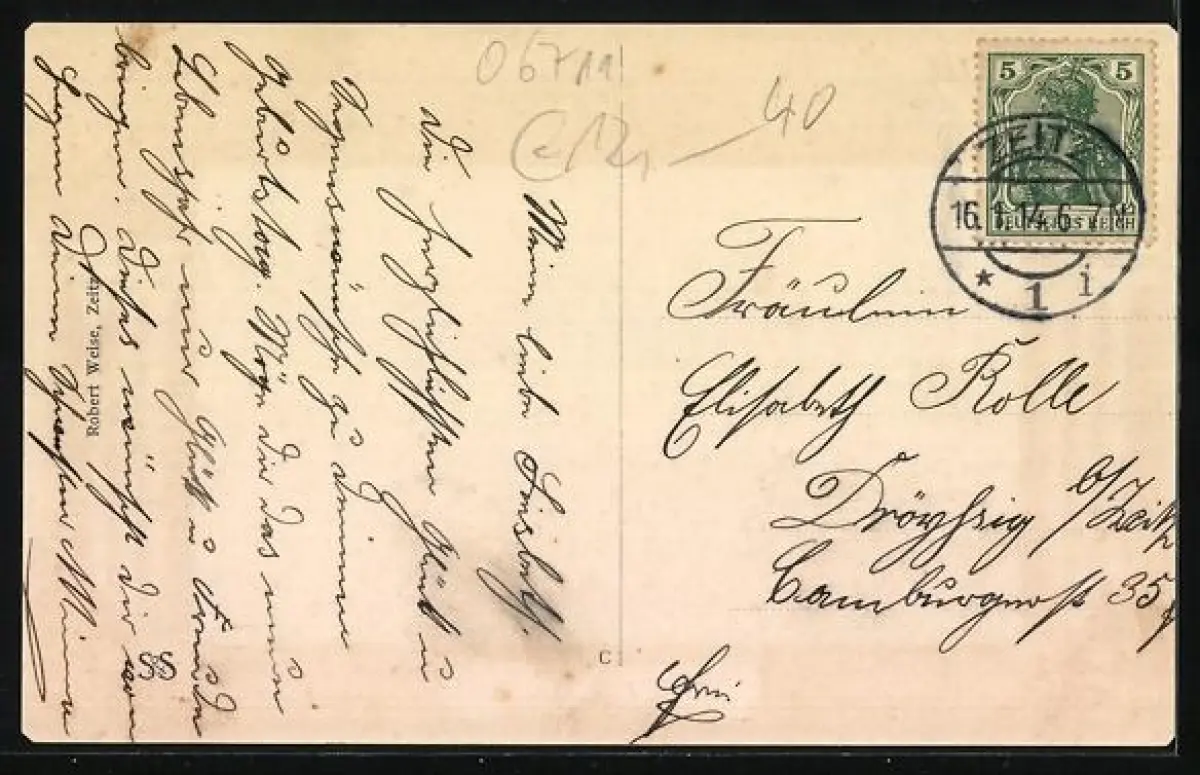 Meine liebe Liesbeth.
Die herzlichsten Glück u
Segenswünsche zu Deinem
Geburtstag. Möge Dir das neue
Lebensjahr nur Glück u Freude
bringen, dieses wünscht Dir von
Herzen Deine Freundin
Robert Weise, Zeitz
C
06711
40
5 5
DEUTSCHES REICH
ZEITZ
16.1.14.6-7N.
* 1 i
Fräulein
Elisabeth Rolle
Dröyßig b/Zeitz
Camburgerst 35
frei